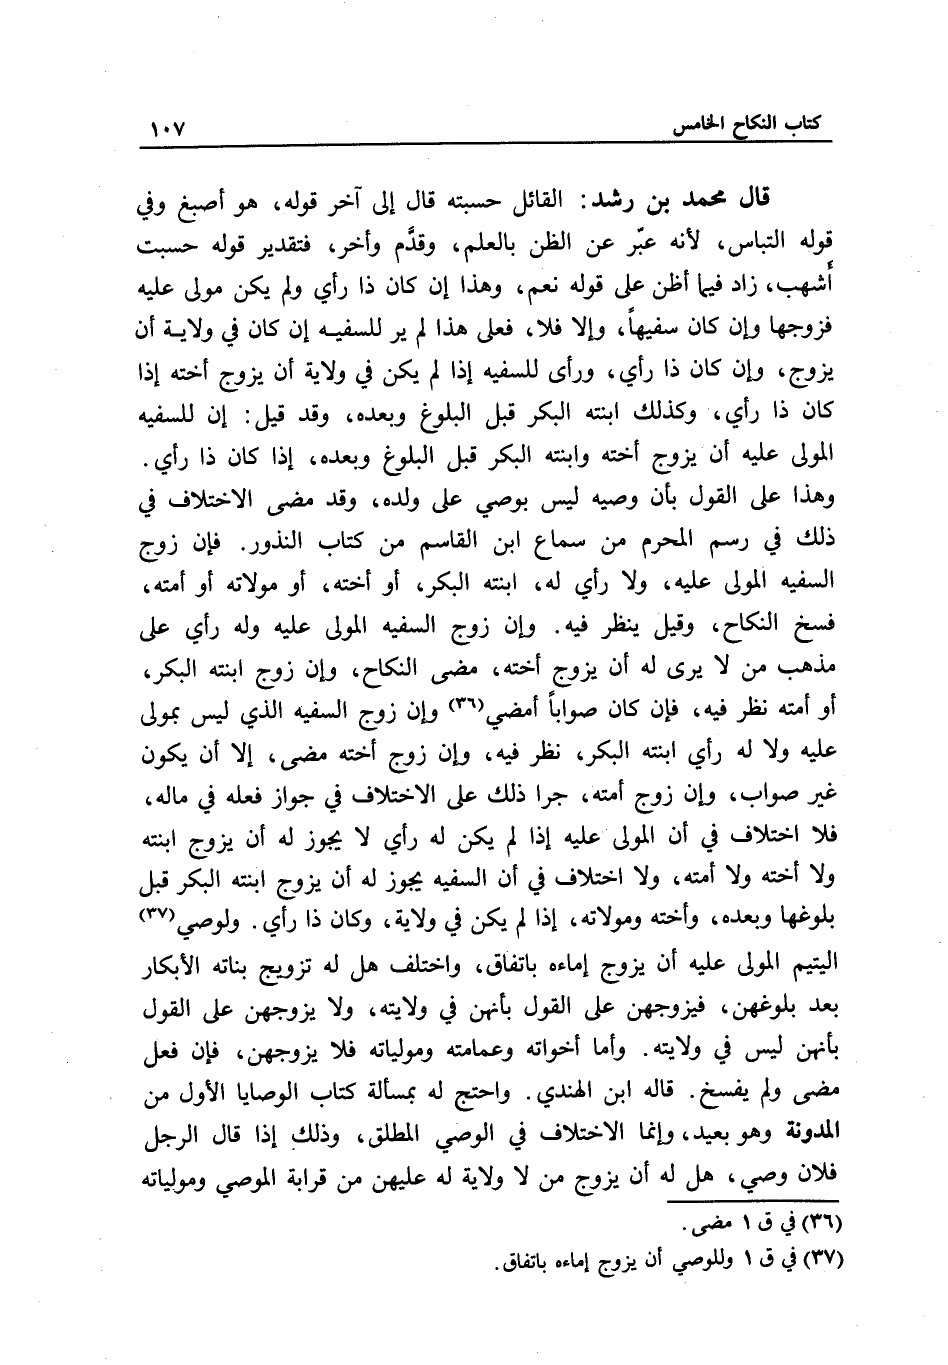 كتاب النكاح الخامس ١٠٧
قال محمد بن رشد: القائل حسبته قال إلى آخر قوله، هو أصبغ وفي
قوله التباس، لأنه عبّر عن الظن بالعلم، وقدَّم وأخر، فتقدير قوله حسبت
أشهب، زاد فيما أظن على قوله نعم، وهذا إن كان ذا رأي ولم يكن مولى عليه
فزوجها وإن كان سفيهاً، وإلا فلا، فعلى هذا لم ير للسفيه إن كان في ولاية أن
يزوج، وإن كان ذا رأي، ورأى للسفيه إذا لم يكن في ولاية أن يزوج أخته إذا
كان ذا رأي، وكذلك ابنته البكر قبل البلوغ وبعده، وقد قيل: إن للسفيه
المولى عليه أن يزوج أخته وابنته البكر قبل البلوغ وبعده، إذا كان ذا رأي.
وهذا على القول بأن وصيه ليس بوصي على ولده، وقد مضى الاختلاف في
ذلك في رسم المحرم من سماع ابن القاسم من كتاب النذور. فإن زوج
السفيه المولى عليه، ولا رأي له، ابنته البكر، أو أخته، أو مولاته أو أمته،
فسخ النكاح، وقيل ينظر فيه. وإن زوج السفيه المولى عليه وله رأي على
مذهب من لا يرى له أن يزوج أخته، مضى النكاح، وإن زوج ابنته البكر،
أو أمته نظر فيه، فإن كان صواباً أمضي(٣٦) وإن زوج السفيه الذي ليس بمولى
عليه ولا له رأي ابنته البكر، نظر فيه، وإن زوج أخته مضى، إلا أن يكون
غير صواب، وإن زوج أمته، جرا ذلك على الاختلاف في جواز فعله في ماله،
فلا اختلاف في أن المولى عليه إذا لم يكن له رأي لا يجوز له أن يزوج ابنته
ولا أخته ولا أمته، ولا اختلاف في أن السفيه يجوز له أن يزوج ابنته البكر قبل
بلوغها وبعده، وأخته ومولاته، إذا لم يكن في ولاية، وكان ذا رأي. ولوصي(٣٧)
اليتيم المولى عليه أن يزوج إماءه باتفاق، واختلف هل له تزويج بناته الأبكار
بعد بلوغهن، فيزوجهن على القول بأنهن في ولايته، ولا يزوجهن على القول
بأنهن ليس في ولايته. وأما أخواته وعمامته ومولياته فلا يزوجهن، فإن فعل
مضى ولم يفسخ. قاله ابن الهندي. واحتج له بمسألة كتاب الوصايا الأول من
المدونة وهو بعيد، وإنما الاختلاف في الوصي المطلق، وذلك إذا قال الرجل
فلان وصي، هل له أن يزوج من لا ولاية له عليهن من قرابة الموصي ومولياته
(٣٦) في ق ١ مضى.
(٣٧) في ق ١ وللوصي أن يزوج إماءه باتفاق.